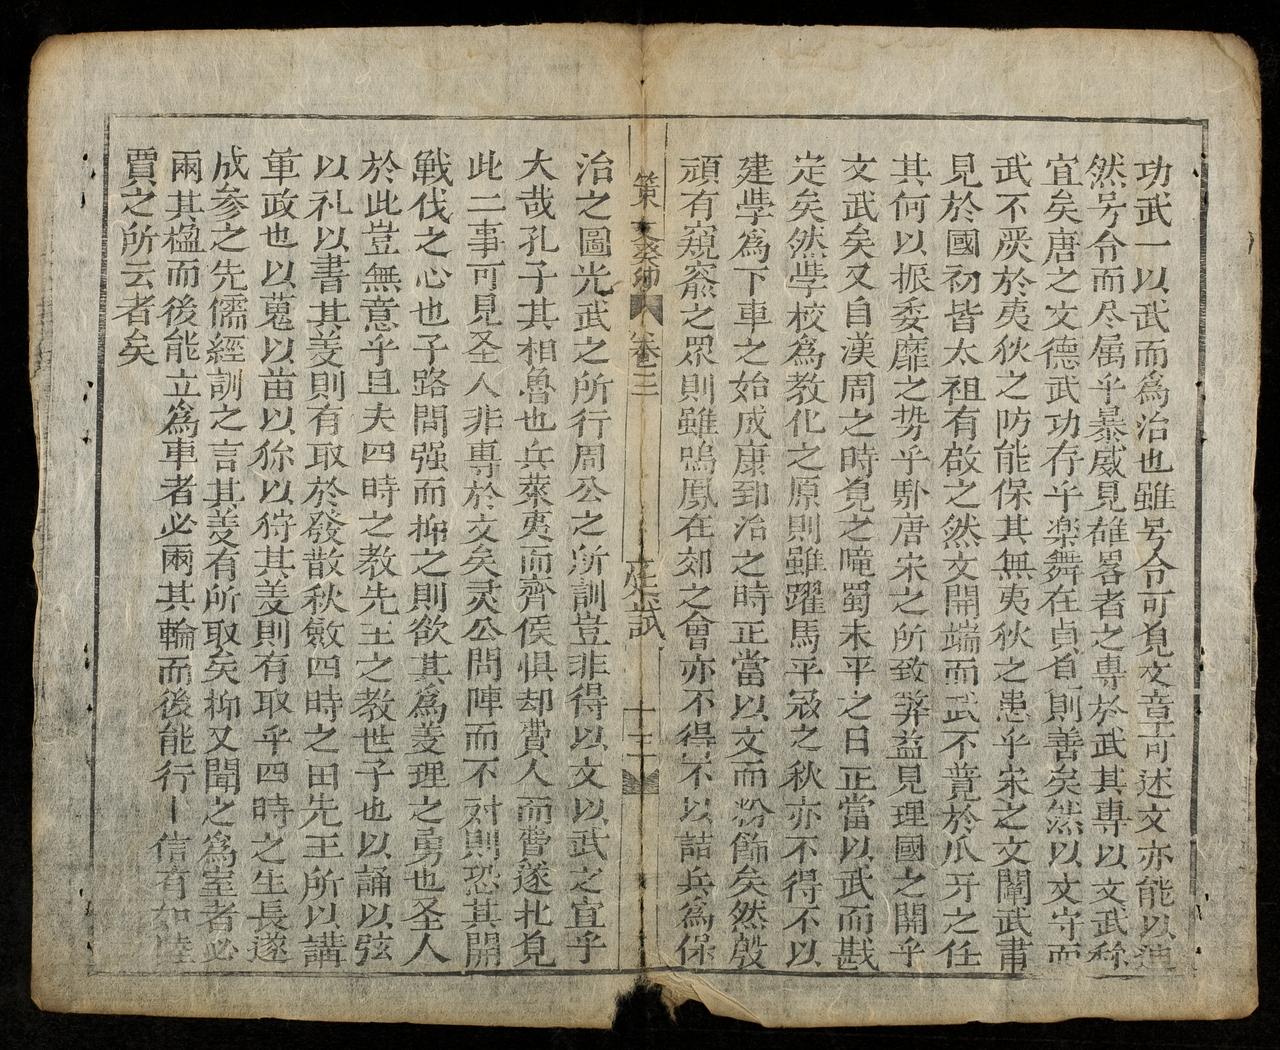 功武一以武而為治也雖号令可覓文章可述文亦能以迪
然号令而尽属乎暴威見雄畧者之専於武其専以文武称
宜矣唐之文德武功存乎楽舞在貞負則善矣然以文守而
武不厌於夷狄之防能保其無夷狄之患乎宋之文闡武肅
見於國初皆太祖有啟之然文開端而武不蕡於爪牙之任
其何以振委靡之势乎馿唐宋之所致弊益見理國之開乎
文武矣又自漢周之時覓之曀蜀未平之日正當以武而戡
定矣然斈校為教化之原則雖躍馬平冦之秋亦不得不以
建斈為下車之始成康致治之時正當以文而粉飾矣然殷
頑有窺窬之眾則雖鳴鳳在郊之會亦不得不以詰兵為保
策文癸卯 卷三 庭試 十三
治之圖光武之所行周公之所訓豈非得以文以武之宜乎
大哉孔子其相魯也兵萊夷而齊侯惧却費人而費遂北覓
此二事可見圣人非專於文矣灵公問陣而不对則恐其開
戰伐之心也子路問强而抑之則欲其為义理之勇也圣人
於此豈無意乎且夫四時之教先王之教世子也以誦以弦
以礼以書其义則有取於發散秋斂四時之田先王所以講
軍政也以蒐以苗以狝以狩其义則有取乎四時之生長遂
成参之先儒經訓之言其义有所取矣抑又聞之為室者必
兩其楹而後能立為車者必兩其輪而後能行信有如陸
賈之所云者矣